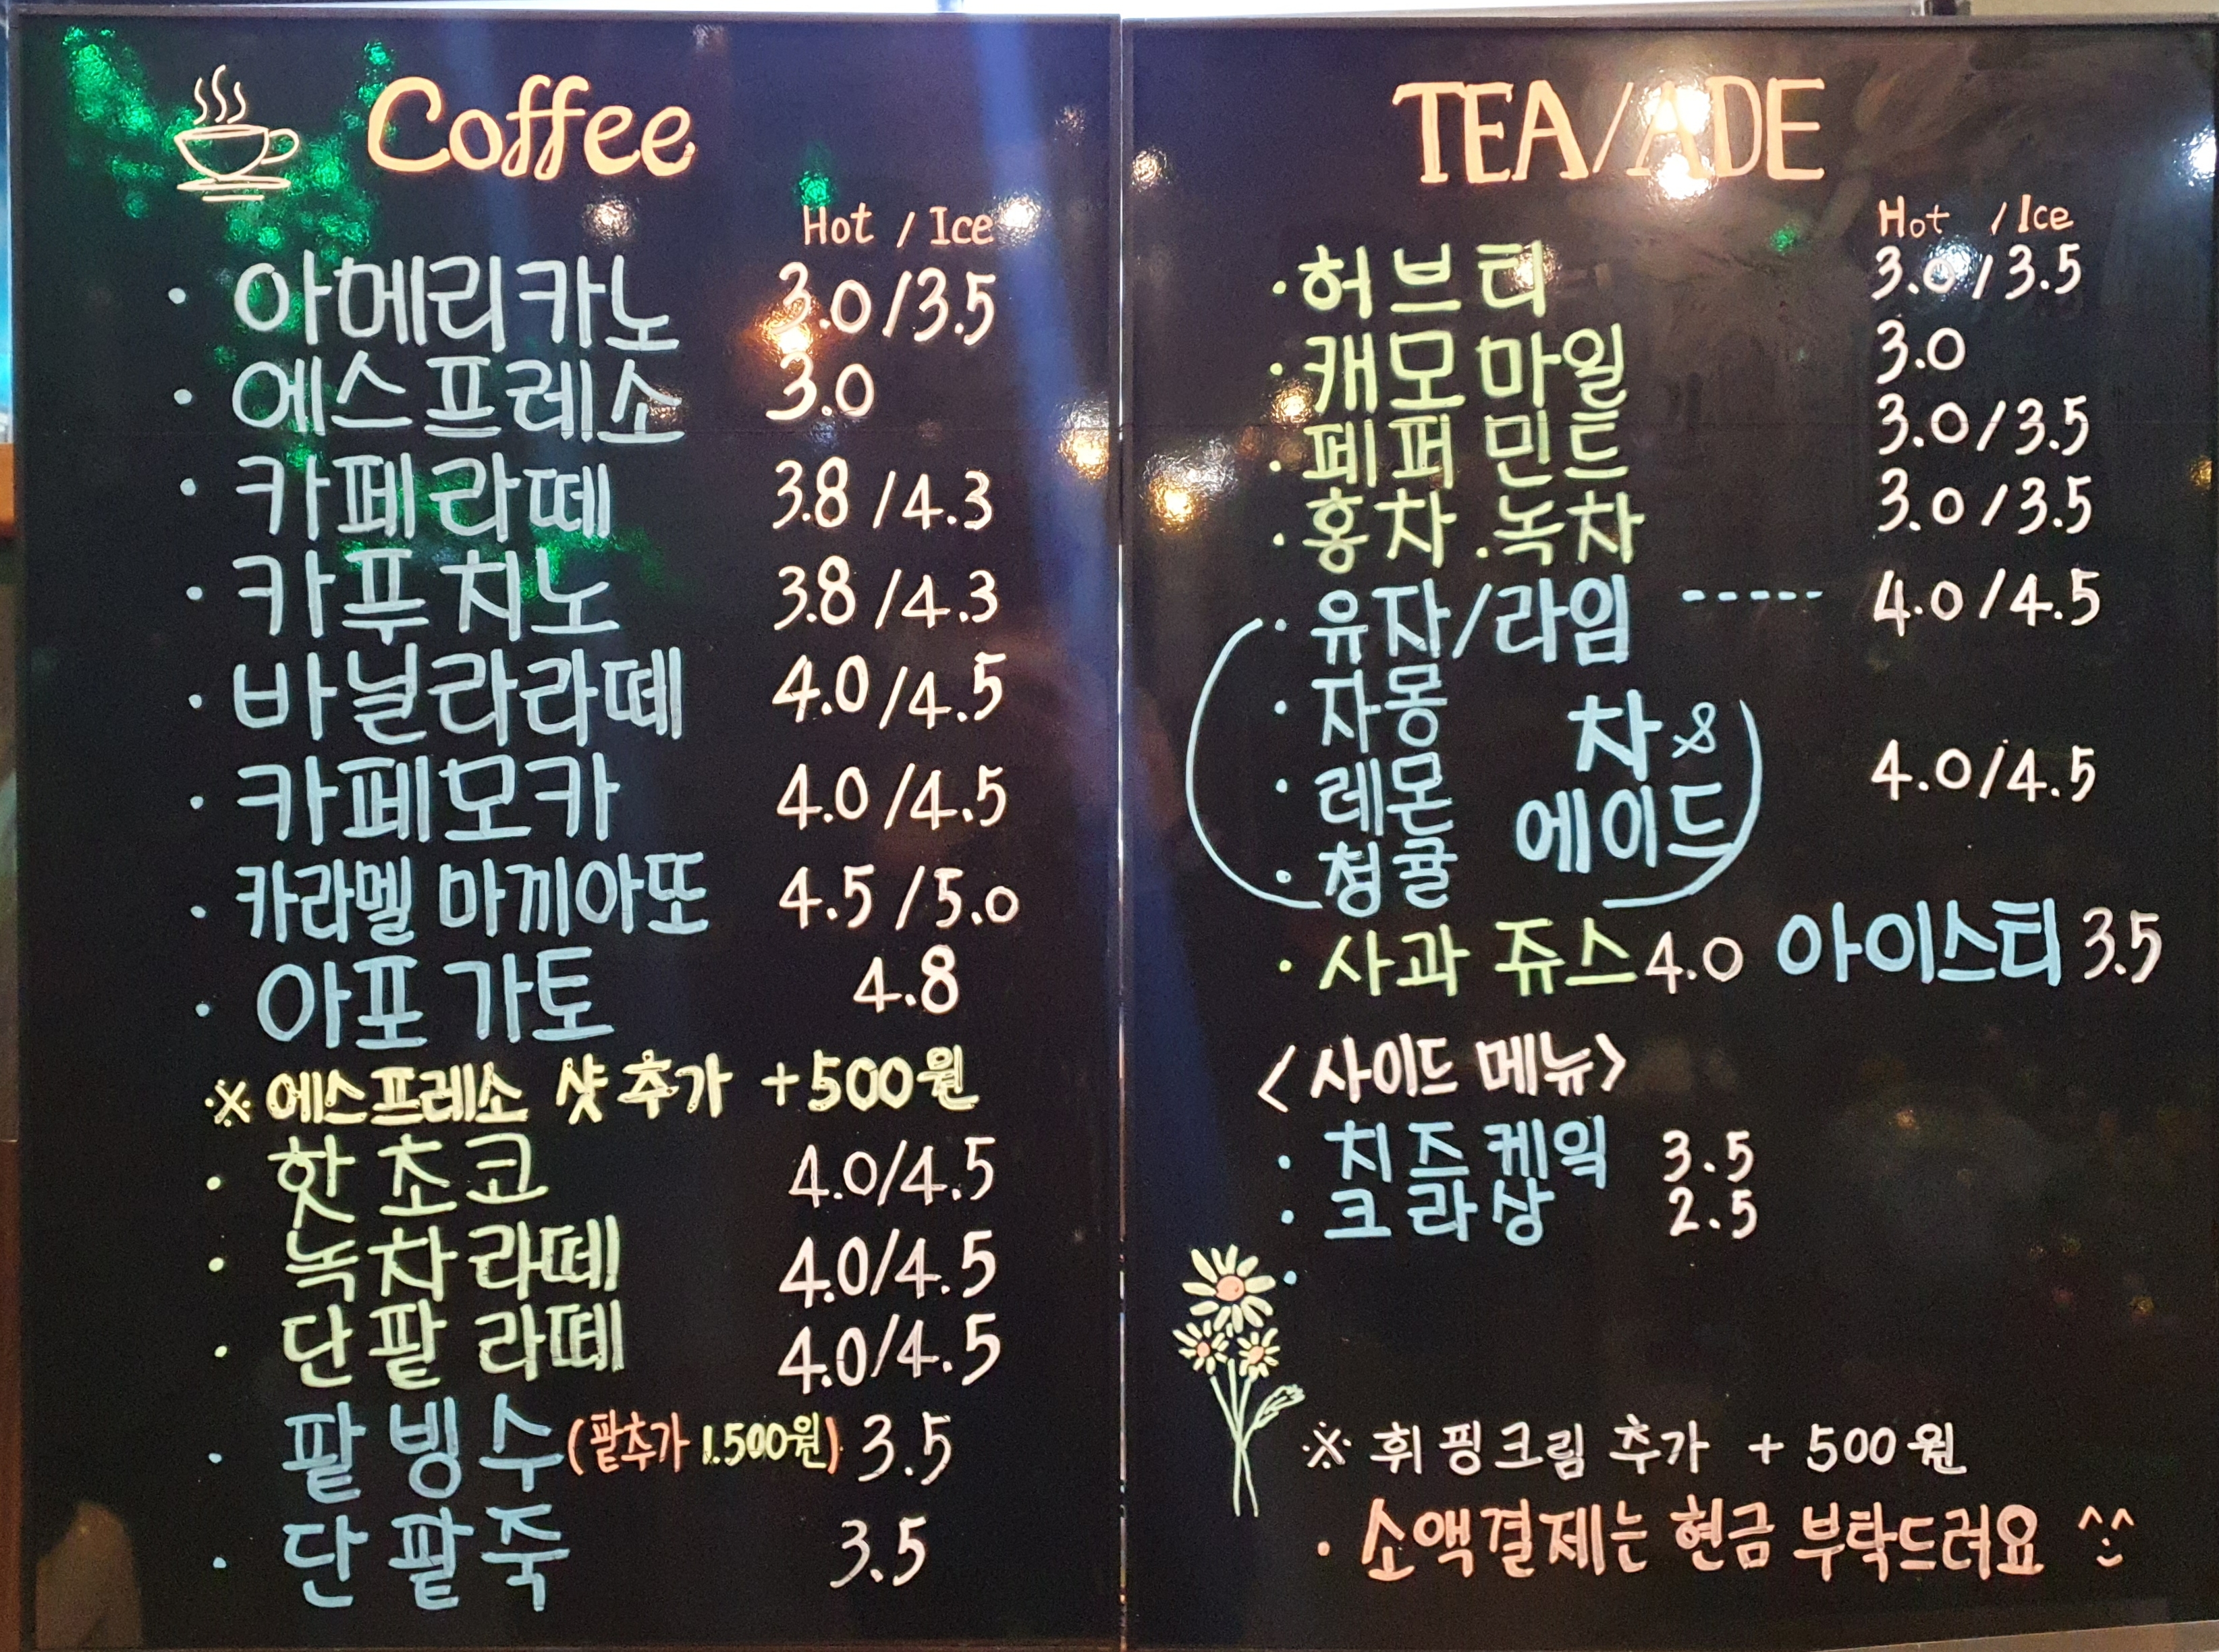 Coffee
Hot / Ice
· 아메리카노 3.0/3.5
· 에스프레소 3.0
· 카페라떼 3.8/4.3
· 카푸치노 3.8/4.3
· 바닐라라떼 4.0/4.5
· 카페모카 4.0/4.5
· 카라멜 마끼아또 4.5/5.0
· 아포가토 4.8
※ 에스프레소 샷추가 +500원
· 핫초코 4.0/4.5
· 녹차라떼 4.0/4.5
· 단팥라떼 4.0/4.5
· 팥빙수(팥추가 1.500원) 3.5
· 단팥죽 3.5
TEA/ADE
Hot / Ice
· 허브티 3.0/3.5
· 캐모마일 3.0
· 페퍼민트 3.0/3.5
· 홍차.녹차 3.0/3.5
· 유자/라임 ----- 4.0/4.5
· 자몽
· 레몬
· 청귤
차 &
에이드
4.0/4.5
· 사과 쥬스 4.0 아이스티 3.5
<사이드 메뉴>
· 치즈케익 3.5
· 크라상 2.5
·
※ 휘핑크림 추가 + 500원
· 소액결제는 현금 부탁드러요 ^^